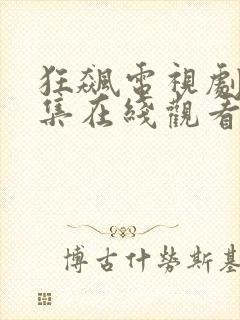 狂飆電視劇
集在綫觀看
博古什勞斯基